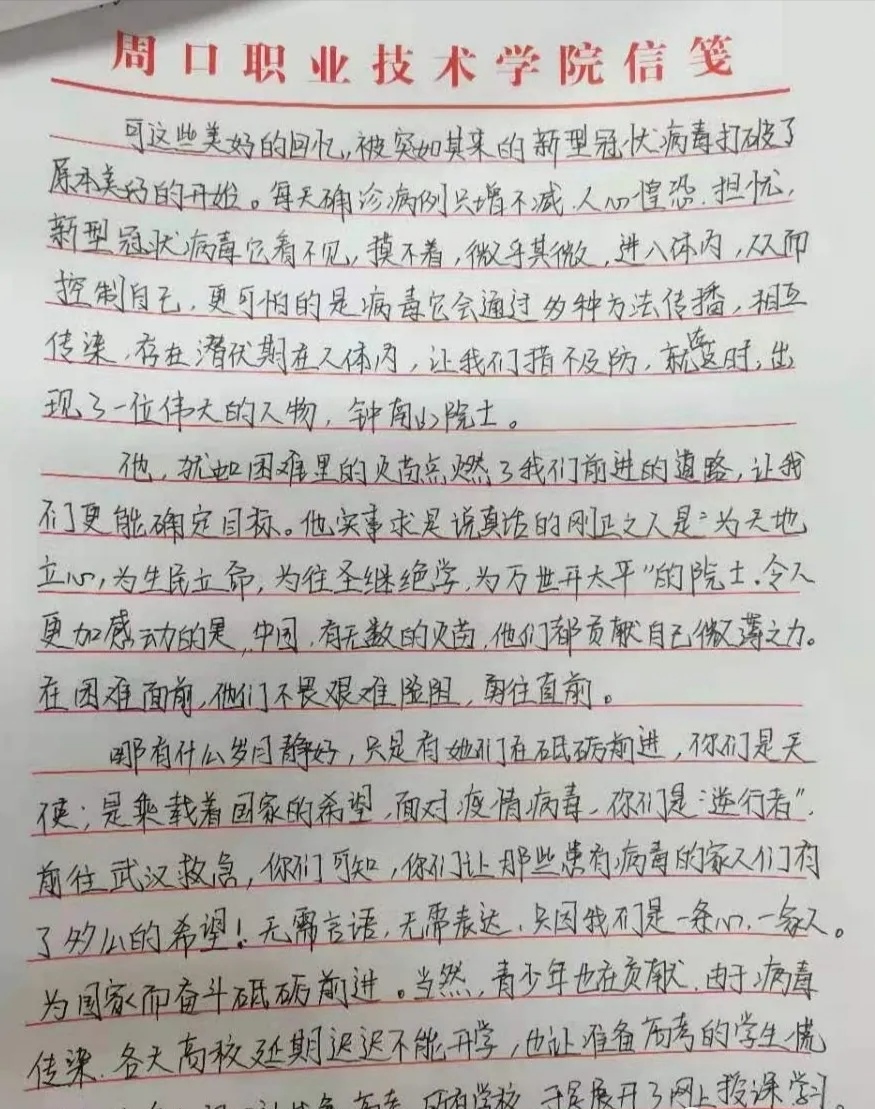 周口职业技术学院信笺
可这些美好的回忆,被突如其来的新型冠状病毒打破了
原本美好的开始。每天确诊病例只增不减,人心惶恐,担忧,
新型冠状病毒它看不见,摸不着,微乎其微,进入体内,从而
控制自己,更可怕的是病毒它会通过多种方法传播,相互
传染,存在潜伏期在人体内,让我们措不及防,就在这时,出
现了一位伟大的人物,钟南山院士。
他,犹如困难里的火苗点燃了我们前进的道路,让我
们更能确定目标。他实事求是说真话的刚正之人是“为天地
立心,为生民立命,为往圣继绝学,为万世开太平”的院士.令人
更加感动的是,中国,有无数的火苗,他们都贡献自己微薄之力。
在困难面前,他们不畏艰难险阻,勇往直前。
哪有什么岁月静好,只是有她们在砥砺前进,你们是天
使;是乘载着国家的希望,面对疫情病毒,你们是“逆行者”,
前往武汉救急,你们可知,你们让那些患有病毒的家人们有
了多么的希望!无需言语,无需表达,只因我们是一条心,一家人。
为国家而奋斗砥砺前进。当然,青少年也在贡献,由于病毒
传染,各大高校延期迟迟不能开学,也让准备高考的学生慌
高考,所有学校,于是展开了网上授课学习。